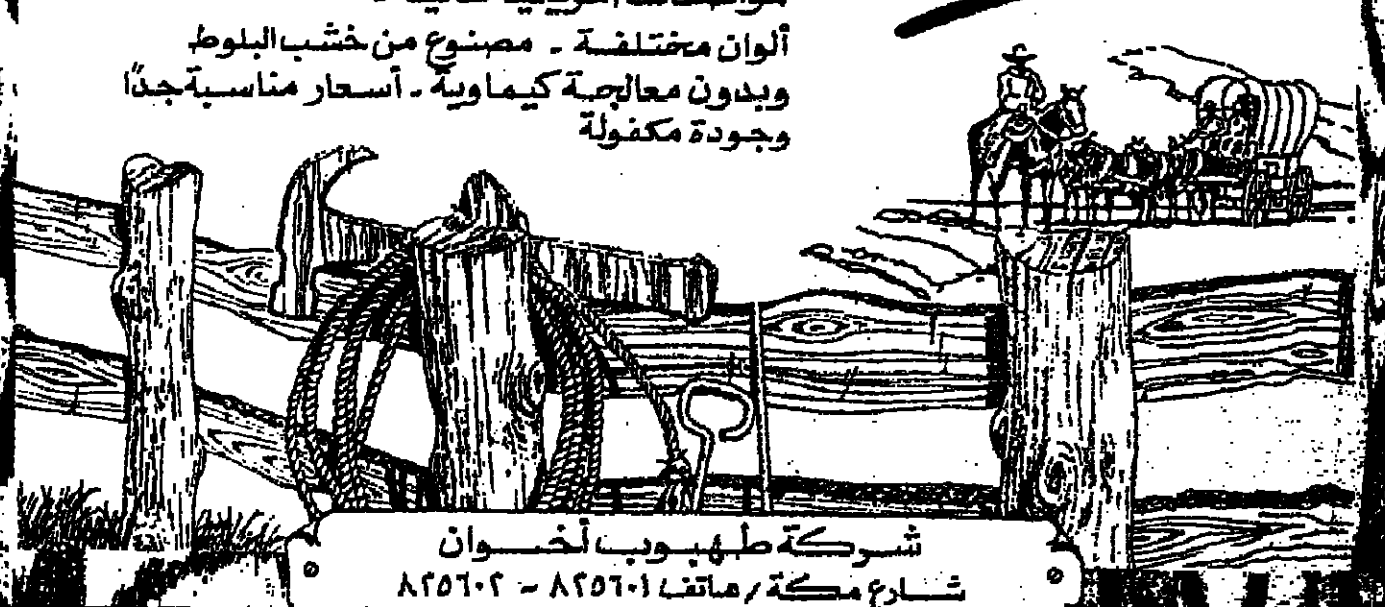 ألوان مختلفة - مصنوع من خشب البلوط
وبدون معالجة كيماوية - أسعار مناسبة جدًا
وجودة مكفولة
شركة طهبوب أخوان
شارع مكة / هاتف ٨٢٥٦٠١ - ٨٢٥٦٠٢